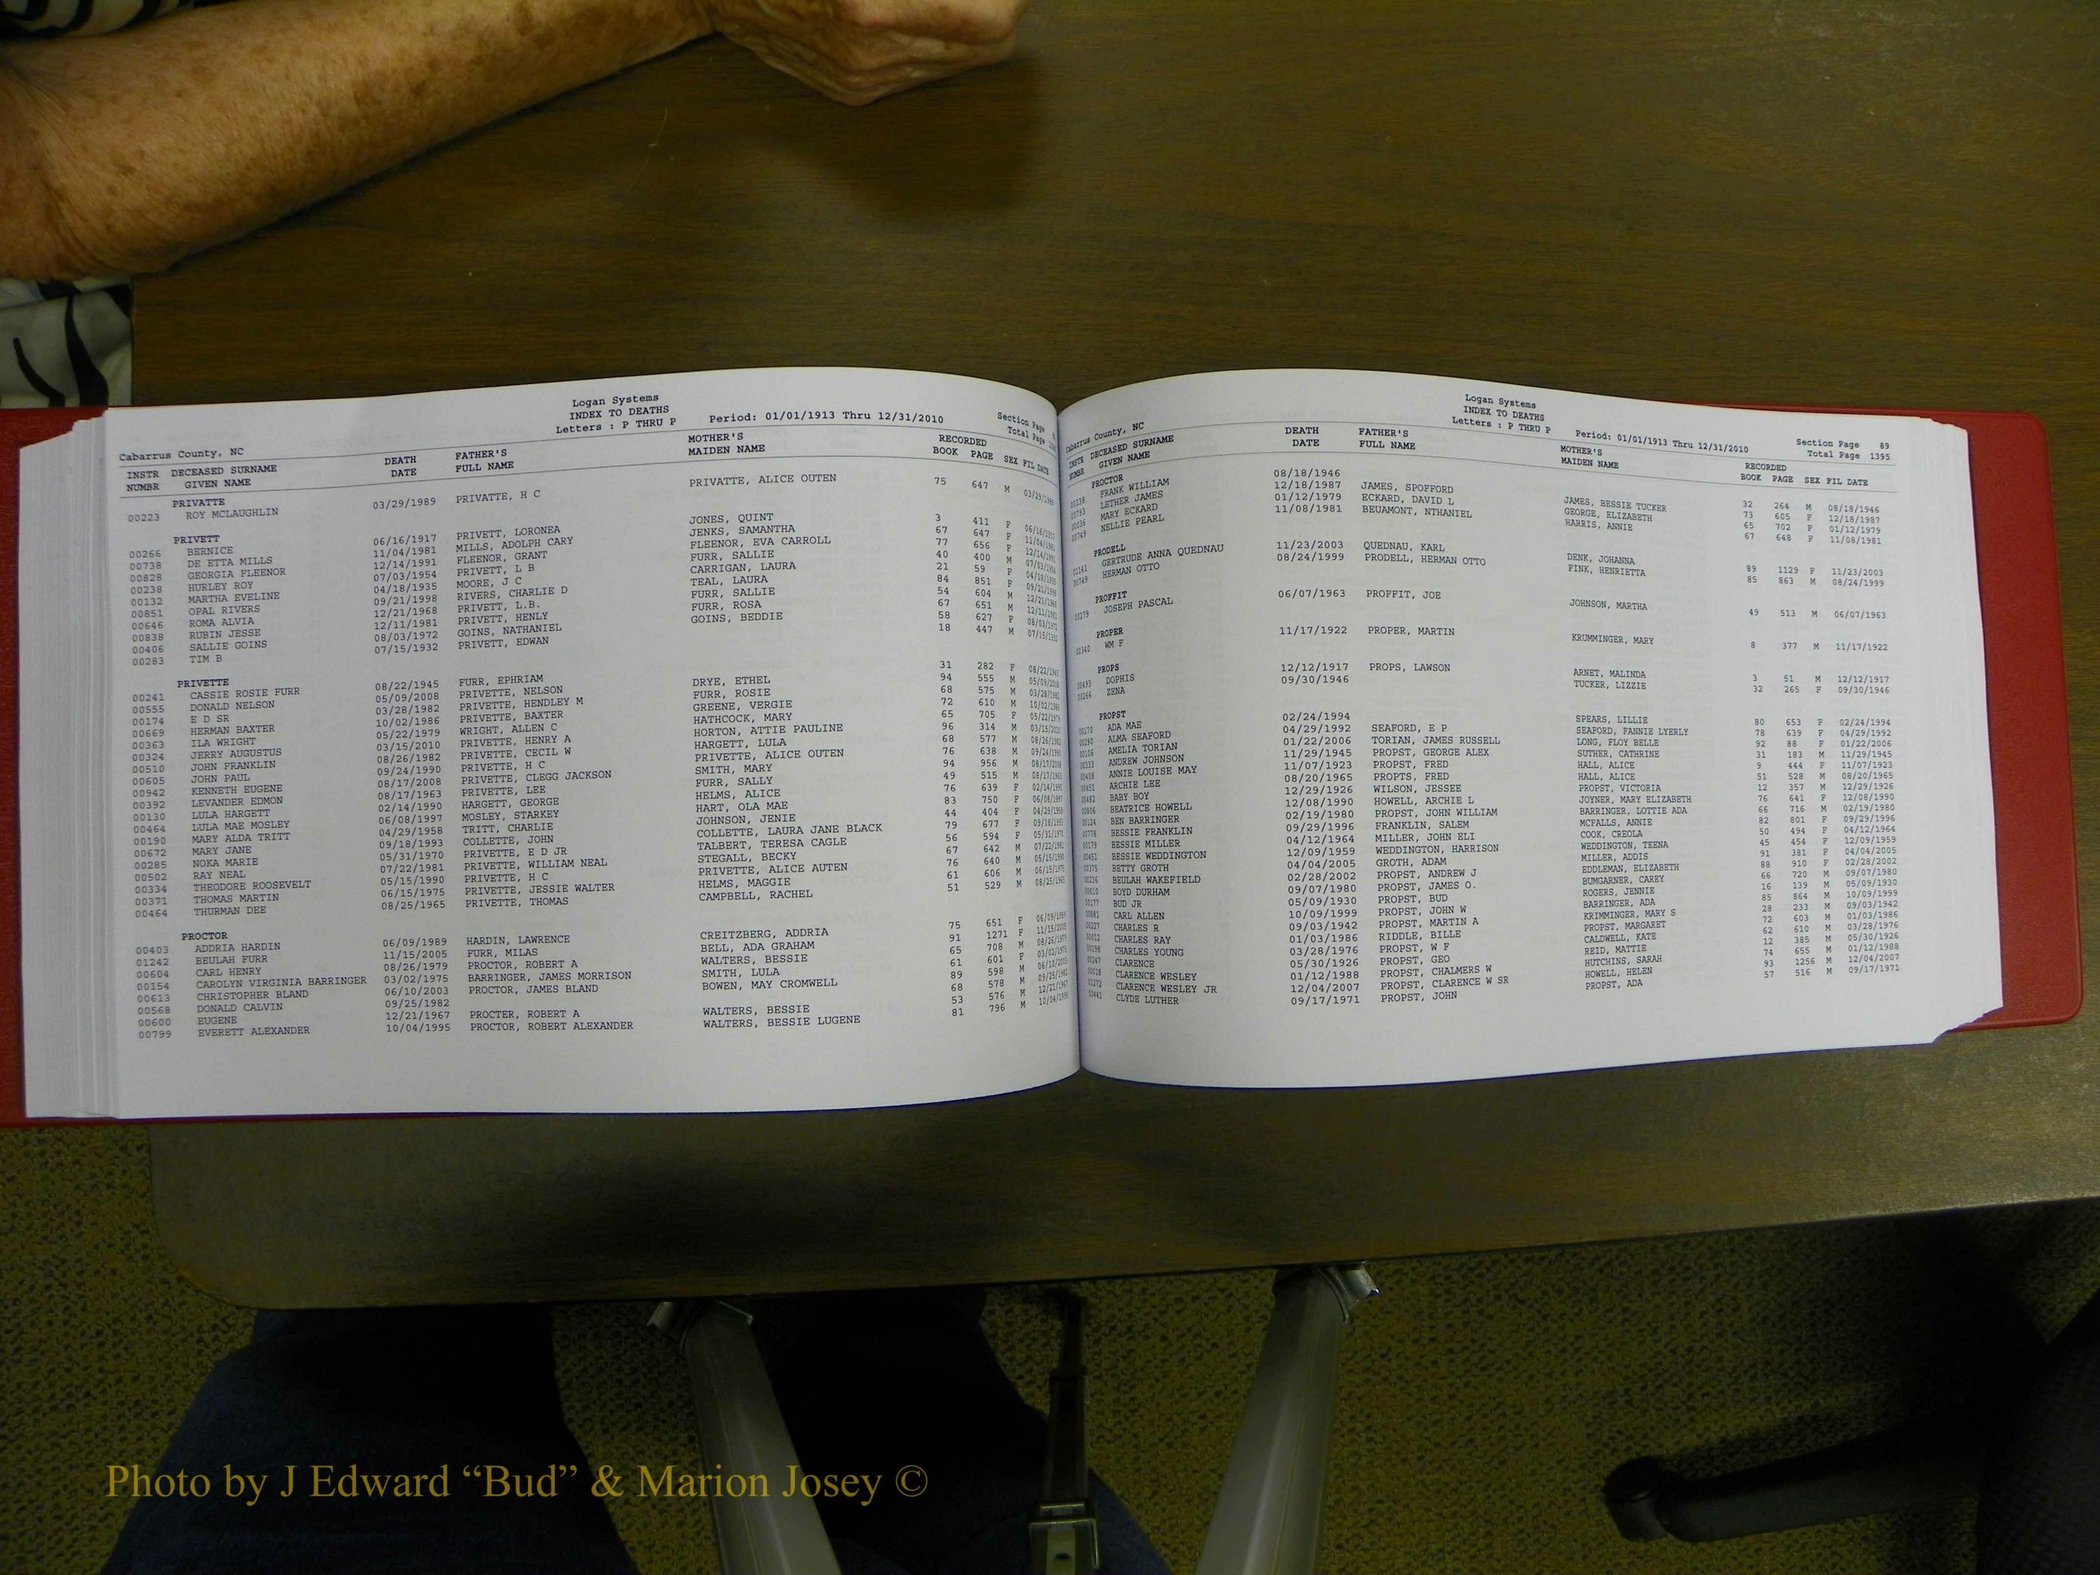 Logan Systems
INDEX TO DEATHS
Letters : P THRU P Period: 01/01/1913 Thru 12/31/2010 Section Page
Cabarrus County, NC Total Page
INSTR DECEASED SURNAME DEATH FATHER'S MOTHER'S RECORDED
NUMBR GIVEN NAME DATE FULL NAME MAIDEN NAME BOOK PAGE SEX FIL DATE
PRIVATTE
00223 ROY MCLAUGHLIN 03/29/1989 PRIVATTE, H C PRIVATTE, ALICE OUTEN 75 647 M 03/29/1989
PRIVETT
00266 BERNICE 06/16/1917 PRIVETT, LORONEA JONES, QUINT 3 411 F
00738 DE ETTA MILLS 11/04/1981 MILLS, ADOLPH CARY JENKS, SAMANTHA 67 647 F
00828 GEORGIA FLEENOR 12/14/1991 FLEENOR, GRANT FLEENOR, EVA CARROLL 77 656 F
00238 HURLEY ROY 07/03/1954 PRIVETT, L B FURR, SALLIE 40 400 M
00132 MARTHA EVELINE 04/18/1935 MOORE, J C CARRIGAN, LAURA 21 59 F
00851 OPAL RIVERS 09/21/1998 RIVERS, CHARLIE D TEAL, LAURA 84 851 F
00646 ROMA ALVIA 12/21/1968 PRIVETT, L.B. FURR, SALLIE 54 604 M
00838 RUBIN JESSE 12/11/1981 PRIVETT, HENLY FURR, ROSA 67 651 M
00406 SALLIE GOINS 08/03/1972 GOINS, NATHANIEL GOINS, BEDDIE 58 627 F
00283 TIM B 07/15/1932 PRIVETT, EDWAN 18 447 M
PRIVETTE
00241 CASSIE ROSIE FURR 08/22/1945 FURR, EPHRIAM DRYE, ETHEL 31 282 F
00555 DONALD NELSON 05/09/2008 PRIVETTE, NELSON FURR, ROSIE 94 555 M
00174 E D SR 03/28/1982 PRIVETTE, HENDLEY M GREENE, VERGIE 68 575 M
00669 HERMAN BAXTER 10/02/1986 PRIVETTE, BAXTER HATHCOCK, MARY 72 610 M
00363 ILA WRIGHT 05/22/1979 WRIGHT, ALLEN C HORTON, ATTIE PAULINE 65 705 F
00324 JERRY AUGUSTUS 03/15/2010 PRIVETTE, HENRY A HARGETT, LULA 96 314 M
00510 JOHN FRANKLIN 08/26/1982 PRIVETTE, CECIL W PRIVETTE, ALICE OUTEN 68 577 M
00605 JOHN PAUL 09/24/1990 PRIVETTE, H C SMITH, MARY 76 638 M
00942 KENNETH EUGENE 08/17/2008 PRIVETTE, CLEGG JACKSON FURR, SALLY 94 956 M
00392 LEVANDER EDMON 08/17/1963 PRIVETTE, LEE HELMS, ALICE 49 515 M
00130 LULA HARGETT 02/14/1990 HARGETT, GEORGE HART, OLA MAE 76 639 F
00464 LULA MAE MOSLEY 06/08/1997 MOSLEY, STARKEY JOHNSON, JENIE 83 750 F
00190 MARY ALDA TRITT 04/29/1958 TRITT, CHARLIE COLLETTE, LAURA JANE BLACK 44 404 F
00672 MARY JANE 09/18/1993 COLLETTE, JOHN TALBERT, TERESA CAGLE 79 677 F
00285 NOKA MARIE 05/31/1970 PRIVETTE, E D JR STEGALL, BECKY 56 594 F
00502 RAY NEAL 07/22/1981 PRIVETTE, WILLIAM NEAL PRIVETTE, ALICE AUTEN 67 642 M
00334 THEODORE ROOSEVELT 05/15/1990 PRIVETTE, H C HELMS, MAGGIE 76 640 M
00371 THOMAS MARTIN 06/15/1975 PRIVETTE, JESSIE WALTER CAMPBELL, RACHEL 61 606 M
00464 THURMAN DEE 08/25/1965 PRIVETTE, THOMAS 51 529 M
PROCTOR
00403 ADDRIA HARDIN 06/09/1989 HARDIN, LAWRENCE CREITZBERG, ADDRIA 75 651 F 06/09/1989
01242 BEULAH FURR 11/15/2005 FURR, MILAS BELL, ADA GRAHAM 91 1271 F 11/15/2005
00604 CARL HENRY 08/26/1979 PROCTOR, ROBERT A WALTERS, BESSIE 65 708 M
00154 CAROLYN VIRGINIA BARRINGER 03/02/1975 BARRINGER, JAMES MORRISON SMITH, LULA 61 601 F
00613 CHRISTOPHER BLAND 06/10/2003 PROCTOR, JAMES BLAND BOWEN, MAY CROMWELL 89 598 M
00568 DONALD CALVIN 09/25/1982 68 578 M
00600 EUGENE 12/21/1967 PROCTER, ROBERT A WALTERS, BESSIE 53 576 M
00799 EVERETT ALEXANDER 10/04/1995 PROCTOR, ROBERT ALEXANDER WALTERS, BESSIE LUGENE 81 796 M 10/04/1995
Logan Systems
INDEX TO DEATHS
Letters : P THRU P Period: 01/01/1913 Thru 12/31/2010 Section Page 89
Cabarrus County, NC Total Page 1395
INSTR DECEASED SURNAME DEATH FATHER'S MOTHER'S RECORDED
NUMBR GIVEN NAME DATE FULL NAME MAIDEN NAME BOOK PAGE SEX FIL DATE
PROCTOR
00238 FRANK WILLIAM 08/18/1946 32 264 M 08/18/1946
00793 LETHER JAMES 12/18/1987 JAMES, SPOFFORD JAMES, BESSIE TUCKER 73 605 F 12/18/1987
00036 MARY ECKARD 01/12/1979 ECKARD, DAVID L GEORGE, ELIZABETH 65 702 F 01/12/1979
00749 NELLIE PEARL 11/08/1981 BEUAMONT, NTHANIEL HARRIS, ANNIE 67 648 F 11/08/1981
PRODELL
01141 GERTRUDE ANNA QUEDNAU 11/23/2003 QUEDNAU, KARL DENK, JOHANNA 89 1129 F 11/23/2003
00749 HERMAN OTTO 08/24/1999 PRODELL, HERMAN OTTO FINK, HENRIETTA 85 863 M 08/24/1999
PROFFIT
00279 JOSEPH PASCAL 06/07/1963 PROFFIT, JOE JOHNSON, MARTHA 49 513 M 06/07/1963
PROPER
00340 WM F 11/17/1922 PROPER, MARTIN KRUMMINGER, MARY 8 377 M 11/17/1922
PROPS
00493 DOPHIS 12/12/1917 PROPS, LAWSON ARNET, MALINDA 3 51 M 12/12/1917
00266 ZENA 09/30/1946 TUCKER, LIZZIE 32 265 F 09/30/1946
PROPST
00170 ADA MAE 02/24/1994 SPEARS, LILLIE 80 653 F 02/24/1994
00290 ALMA SEAFORD 04/29/1992 SEAFORD, E P SEAFORD, FANNIE LYERLY 78 639 F 04/29/1992
00106 AMELIA TORIAN 01/22/2006 TORIAN, JAMES RUSSELL LONG, FLOY BELLE 92 88 F 01/22/2006
00333 ANDREW JOHNSON 11/29/1945 PROPST, GEORGE ALEX SUTHER, CATHRINE 31 183 M 11/29/1945
00408 ANNIE LOUISE MAY 11/07/1923 PROPST, FRED HALL, ALICE 9 444 F 11/07/1923
00451 ARCHIE LEE 08/20/1965 PROPTS, FRED HALL, ALICE 51 528 M 08/20/1965
00482 BABY BOY 12/29/1926 WILSON, JESSEE PROPST, VICTORIA 12 357 M 12/29/1926
00806 BEATRICE HOWELL 12/08/1990 HOWELL, ARCHIE L JOYNER, MARY ELIZABETH 76 641 F 12/08/1990
00124 BEN BARRINGER 02/19/1980 PROPST, JOHN WILLIAM BARRINGER, LOTTIE ADA 66 716 M 02/19/1980
00778 BESSIE FRANKLIN 09/29/1996 FRANKLIN, SALEM MCFALLS, ANNIE 82 801 F 09/29/1996
00179 BESSIE MILLER 04/12/1964 MILLER, JOHN ELI COOK, CREOLA 50 494 F 04/12/1964
00451 BESSIE WEDDINGTON 12/09/1959 WEDDINGTON, HARRISON WEDDINGTON, TEENA 45 454 F 12/09/1959
00375 BETTY GROTH 04/04/2005 GROTH, ADAM MILLER, ADDIS 91 381 F 04/04/2005
00236 BEULAH WAKEFIELD 02/28/2002 PROPST, ANDREW J EDDLEMAN, ELIZABETH 88 910 F 02/28/2002
00610 BOYD DURHAM 09/07/1980 PROPST, JAMES O. BUMGARNER, CAREY 66 720 M 09/07/1980
00177 BUD JR 05/09/1930 PROPST, BUD ROGERS, JENNIE 16 139 M 05/09/1930
00881 CARL ALLEN 10/09/1999 PROPST, JOHN W BARRINGER, ADA 85 864 M 10/09/1999
00227 CHARLES R 09/03/1942 PROPST, MARTIN A KRIMMINGER, MARY S 28 233 M 09/03/1942
00012 CHARLES RAY 01/03/1986 RIDDLE, BILLE PROPST, MARGARET 72 603 M 01/03/1986
00198 CHARLES YOUNG 03/28/1976 PROPST, W F CALDWELL, KATE 62 610 M 03/28/1976
00247 CLARENCE 05/30/1926 PROPST, GEO REID, MATTIE 12 385 M 05/30/1926
00018 CLARENCE WESLEY 01/12/1988 PROPST, CHALMERS W HUTCHINS, SARAH 74 655 M 01/12/1988
01272 CLARENCE WESLEY JR 12/04/2007 PROPST, CLARENCE W SR HOWELL, HELEN 93 1256 M 12/04/2007
00441 CLYDE LUTHER 09/17/1971 PROPST, JOHN PROPST, ADA 57 516 M 09/17/1971
Photo by J Edward “Bud” & Marion Josey ©